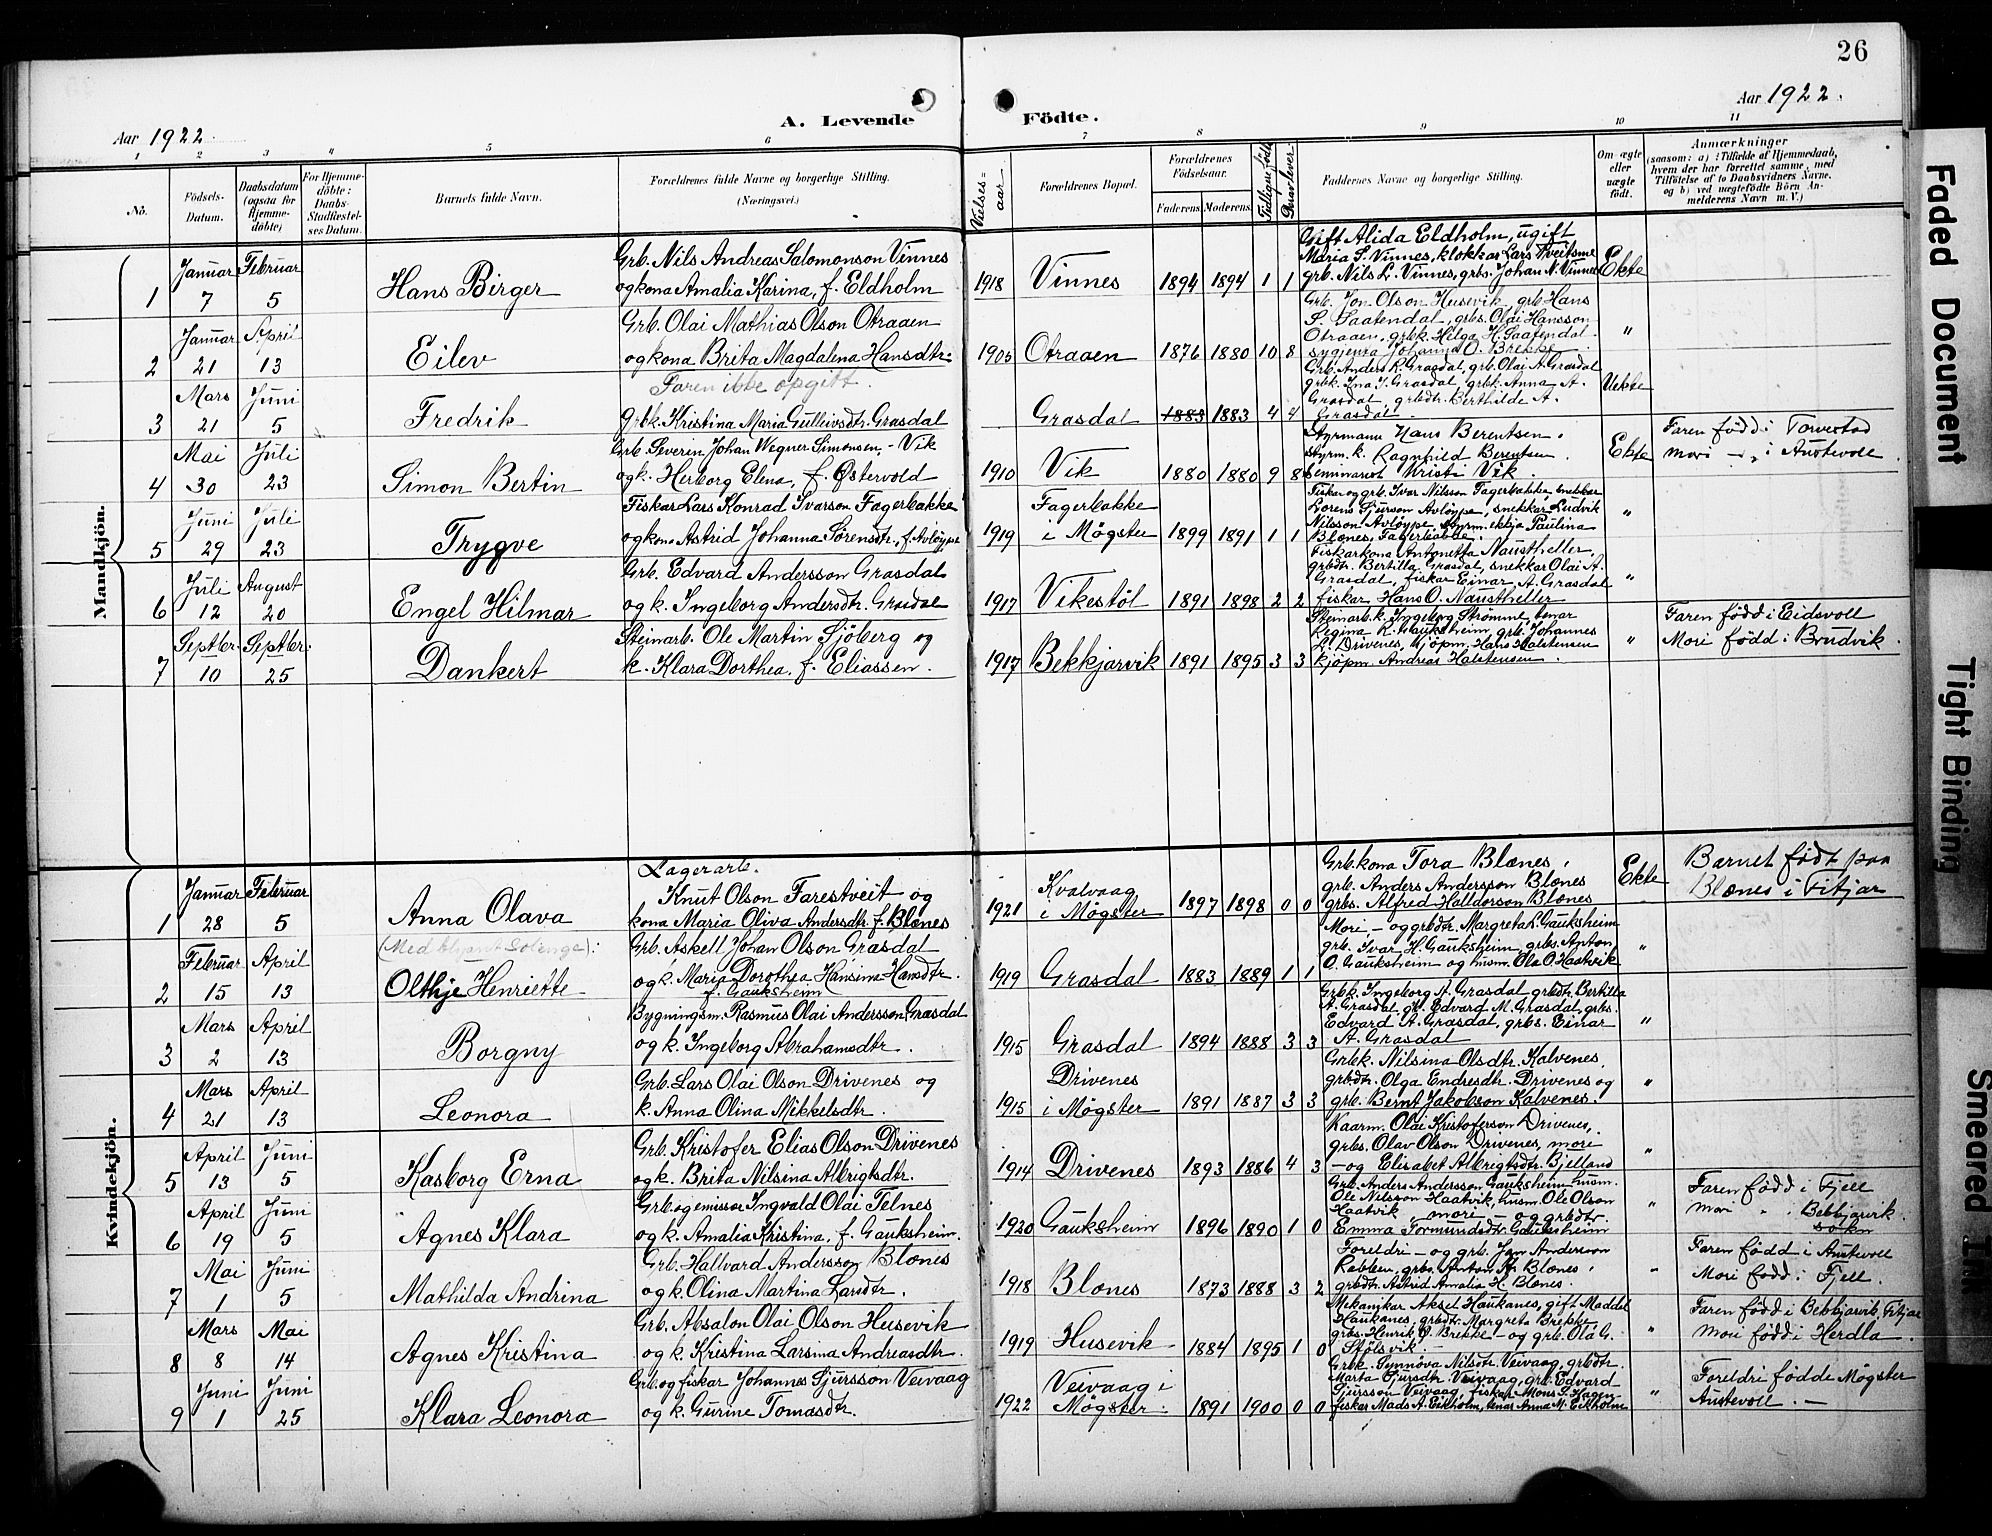 26
Aar 1922.
A. Levende Födte.
Aar 1922.
1 2 3 4 5 6 7 8 9 10 11
No.
Födsels-Datum.
Daabsdatum (ogsaa for Hjemmedöbte)
For Hjemmedöbte: Daabs-Stadfæstelses Datum.
Barnets fulde Navn.
Forældrenes fulde Navne og borgerlige Stilling.
(Næringsvei.)
Vielses-aar.
Forældrenes Bopæl.
Forældrenes Födselsaar.
Faderens. Moderens.
Tidligere födte
Deraf lever
Faddernes Navne og borgerlige Stilling.
Om ægte eller uægte födt.
Anmærkninger
(saasom: a) i Tilfælde af Hjemmedaab, hvem der har forrettet samme, med Tilföielse af to Daabsvidners Navne, og b) ved uegtefödte Börn Anmelderens Navn m. V.)
Mandkjön.
1 Januar 7 Februar 5 Hans Birger
Grb. Nils Andreas Salomonson Vinnes
og kona Amalia Karina, f. Eldholm
1918 Vinnes 1894 1894 1 1
Gift Alida Eldholm, ugift
Maria S. Vinnes, klokkar Lars Tveitsme
grb. Nils L. Vinnes, grbs. Johan N. Vinnes
Ekte
2 Januar 21 April 13 Eilev
Grb. Olai Mathias Olson Otraaen
og kona Brita Magdalena Hansdtr.
1905 Otraaen 1876 1880 10 8
Grb. Jon Olson Husevik, grb Hans
S. Saatendal, grbs. Olai Hansson
Otraaen, grbk. Helga H. Saatendal.
sygjenta Johanna O. Brekke
"
3 Mars 21 Juni 5 Fredrik
Faren ikke opgitt.
Grbk. Kristina Maria Gulleivsdtr Grasdal
Grasdal 1883 1883 4 4
Grb. Anders R. Grasdal, grb. Olai A. Grasdal
grbk. Ina J. Grasdal, grbk. Anna A.
Grasdal, grbdtr. Berthilde A.
Grasdal
Uekte
4 Mai 30 Juli 23 Simon Bertin
Grb. Severin Johan Wegner Simonsen, - Vik
og k. Herborg Elena, f. Østervold
1910 Vik 1880 1880 9 8
Styrmann Hans Berentsen.
Styrm. k. Ragnhild Berentsen
Seminarist Kristi Vik
Ekte
Faren född i Torvestad
Mori - " - i Austevoll
5 Juni 29 Juli 23 Trygve
Fiskar Lars Konrad Ivarson Fagerbakke
og kona Astrid Johanna Sörensdtr. f. Avløype
1919 Fagerbakke i Møgster 1899 1891 1 1
Fiskar og grb. Ivar Nilsson Fagerbakke, snekkar
Lorens Sjurson Avløype, snekkar Ludvik
Nilsson Avløype, Styrm. ekkja Paulina
Blones, Fagerbakke.
"
6 Juli 12 August 20 Engel Hilmar
Grb. Edvard Andersson Grasdal
og k. Ingeborg Andersdtr. Grasdal
1917 Vikestöl 1891 1898 2 2
Fiskarkona Antonetta Naustheller,
grbdtr. Bertilla Grasdal, snekkar Olai A.
Grasdal, fiskar Einar A. Grasdal
fiskar Hans O. Naustheller
"
7 Septbr. 10 Septbr. 25 Dankert
Steinarb. Ole Martin Sjöberg og
k. Klara Dorthea, f. Eliassen.
1917 Bekkjarvik 1891 1895 3 3
Steinarb. k. Ingeborg Strömme, tenar
Regina K. Hauksheim, grb. Johannes
L. Drivenes, kjöpm. Hans Halstensen
kjöpm. Andreas Halstensen.
"
Faren född i Eidsvoll
Mori född i Brudvik.
Kvindekjön.
1 Januar 28 Februar 5 Anna Olava
Lagerarb.
Knut Olson Farestveit og
kona Maria Oliva Andersdtr. f. Blænes
1921 Kvalvaag i Møgster 1897 1898 0 0
Grb. kona Tora Blænes,
grb. Anders Andersson Blænes
grbs. Alfred Halldorson Blænes
Ekte
Barnet födt paa
Blænes i Fitjar
2 Februar 15 April 13 Olthje Henriette
Grb. Askell Johan Olson Grasdal
og k. Maria Dorothea Hansina Hansdtr.
f. Gauksheim
1919 Grasdal 1883 1889 1 1
Mori, - og grbdtr. Margreta H. Gauksheim
grb. Ivar H. Gauksheim, grbs. Anton
O. Gauksheim og husm. Ola O. Haatvik
"
3 Mars 2 April 13 Borgny
Bygningsm. Rasmus Olai Andersson Grasdal
og k. Ingeborg Abrahamsdtr.
1915 Grasdal 1894 1888 3 3
Grbk. Ingeborg A. Grasdal grbdtr. Bertilla
A. Grasdal, gb. Edvard M. Grasdal, grbs.
Edvard A. Grasdal, grbs. Einar
A. Grasdal
"
4 Mars 21 April 13 Leonora
Grb. Lars Olai Olson Drivenes og
k. Anna Olina Mikkelsdtr.
1915 Drivenes i Møgster 1891 1887 3 3
Grbk. Nilsina Olsdtr. Kalvenes,
grbdtr. Olga Endresdtr. Drivenes og
grb. Bernt Jakobson Kalvenes.
"
5 April 13 Juni 5 Kasborg Erna
Grb. Kristofer Elias Olson Drivenes
og k. Brita Nilsina Albrigtsdtr.
1914 Drivenes 1893 1886 4 3
Kaarm. Olai Kristoferson Drivenes,
grbs. Olav Olson Drivenes, mori
- og Elisabet Albrigtsdtr. Bjelland
"
6 April 19 Juni 5 Agnes Klara
Grb. og emissær Ingvald Olai Telnes
og k. Amalia Kristina, f. Gauksheim.
1920 Gauksheim 1896 1890 1 0
Grb. Anders Andersson Gauksheim, husm.
Ole Nilsson Haatvik, husm. Ole Olson
Haatvik mori - og grbdtr.
Emma Tormundsdtr Gauksheim
"
Faren född i Fjell
Mori " " Bekkjarvik sokn
7 Mai 1 Juni 5 Mathilda Andrina
Grb. Hallvard Andersson Blænes
og k. Olina Martina Larsdtr.
1918 Blænes 1873 1888 3 2
Foreldri - og grb. Jan Anderson
Rabben, grbs. Anton A. Blænes,
grbdtr. Astrid Amalia H. Blænes.
"
Faren född i Austevoll
Mori född i Fjell.
8 Mars 8 Mai 14 Agnes Kristina
Grb. Absalon Olai Olson Husevik
og k. Kristina Larsina Andreasdtr.
1919 Husevik 1884 1895 1 0
Mekanikar Aksel Haukanes, gift Maddel
Haukanes, grbdtr. Margreta Brekke
grbs. Henrik O. Brekke - og grb. Ola G.
Stölsvik.
"
Faren född i Bekkjarvik, Fitjar
Mori född i Herdla.
9 Juni 1 Juni 25 Klara Leonora
Grb. og fiskar Johannes Sjursson Veivaag
og k. Gurine Tomasdtr.
1922 Veivaag i Møgster. 1891 1900 0 0
Grbk. Synnöva Nilsdtr. Veivaag, grbdtr.
Marta Sjursdtr. Veivaag, grb. Edvard
Sjursson Veivaag, fiskar Mons S. Hagen
fiskar Mads A. Eikholm, tenar Anna M. Eikholm
"
Foreldri födde Møgster
Austevoll.
Faded Document
Tight Binding
Smeared Ink